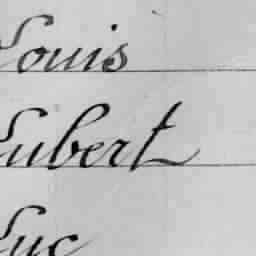 Louis
Lubert
Luc